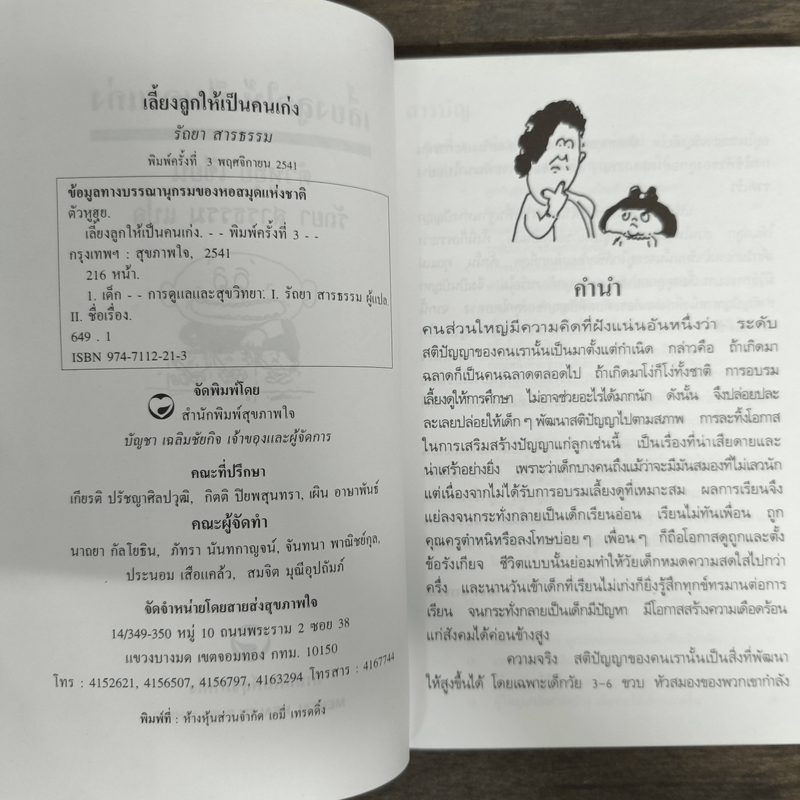 เลี้ยงลูกให้เป็นคนเก่ง
รัถยา สารธรรม
พิมพ์ครั้งที่ 3 พฤศจิกายน 2541
ข้อมูลทางบรรณานุกรมของหอสมุดแห่งชาติ
ตัวหูฮุย.
เลี้ยงลูกให้เป็นคนเก่ง. - - พิมพ์ครั้งที่ 3 - -
กรุงเทพฯ : สุขภาพใจ, 2541
216 หน้า.
1. เด็ก - - การดูแลและสุขวิทยา. I. รัถยา สารธรรม ผู้แปล.
II. ชื่อเรื่อง.
649 . 1
ISBN 974-7112-21-3
จัดพิมพ์โดย
สำนักพิมพ์สุขภาพใจ
บัญชา เฉลิมชัยกิจ เจ้าของและผู้จัดการ
คณะที่ปรึกษา
เกียรติ ปรัชญาศิลปวุฒิ, กิตติ ปิยพสุนทรา, เผิน อาษาพันธ์
คณะผู้จัดทำ
นาถยา กัลโยธิน, ภัทรา นันทกาญจน์, จันทนา พาณิชย์กุล,
ประนอม เสือแคล้ว, สมจิต มุณีอุปถัมภ์
จัดจำหน่ายโดยสายส่งสุขภาพใจ
14/349-350 หมู่ 10 ถนนพระราม 2 ซอย 38
แขวงบางมด เขตจอมทอง กทม. 10150
โทร : 4152621, 4156507, 4156797, 4163294 โทรสาร : 4167744
พิมพ์ที่ : ห้างหุ้นส่วนจำกัด เอมี่ เทรดดิ้ง
คำนำ
คนส่วนใหญ่มีความคิดที่ฝังแน่นอันหนึ่งว่า ระดับ
สติปัญญาของคนเรานั้นเป็นมาตั้งแต่กำเนิด กล่าวคือ ถ้าเกิดมา
ฉลาดก็เป็นคนฉลาดตลอดไป ถ้าเกิดมาโง่ก็โง่ทั้งชาติ การอบรม
เลี้ยงดูให้การศึกษา ไม่อาจช่วยอะไรได้มากนัก ดังนั้น จึงปล่อยปละ
ละเลยปล่อยให้เด็ก ๆ พัฒนาสติปัญญาไปตามสภาพ การละทิ้งโอกาส
ในการเสริมสร้างปัญญาแก่ลูกเช่นนี้ เป็นเรื่องที่น่าเสียดายและ
น่าเศร้าอย่างยิ่ง เพราะว่าเด็กบางคนถึงแม้ว่าจะมีมันสมองที่ไม่เลวนัก
แต่เนื่องจากไม่ได้รับการอบรมเลี้ยงดูที่เหมาะสม ผลการเรียนจึง
แย่ลงจนกระทั่งกลายเป็นเด็กเรียนอ่อน เรียนไม่ทันเพื่อน ถูก
คุณครูตำหนิหรือลงโทษบ่อย ๆ เพื่อน ๆ ก็ถือโอกาสดูถูกและตั้ง
ข้อรังเกียจ ชีวิตแบบนั้นย่อมทำให้วัยเด็กหมดความสดใสไปกว่า
ครึ่ง และนานวันเข้าเด็กที่เรียนไม่เก่งก็ยิ่งรู้สึกทุกข์ทรมานต่อการ
เรียน จนกระทั่งกลายเป็นเด็กมีปัญหา มีโอกาสสร้างความเดือดร้อน
แก่สังคมได้ค่อนข้างสูง
ความจริง สติปัญญาของคนเรานั้นเป็นสิ่งที่พัฒนา
ให้สูงขึ้นได้ โดยเฉพาะเด็กวัย 3-6 ขวบ หัวสมองของพวกเขากำลัง